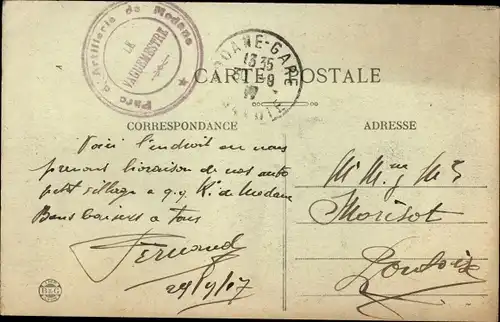 Parc d'Artillerie de Modane
LE
VAGUEMESTRE
MODANE-GARE
13 35
SAVOIE
CARTE POSTALE
CORRESPONDANCE
ADRESSE
Voici l'endroit ou nous
prenons livraison de nos auto
petit village a q.q K. de Modane
Bons baisers a tous
Fernand
29/9/17
Morisot
B&G